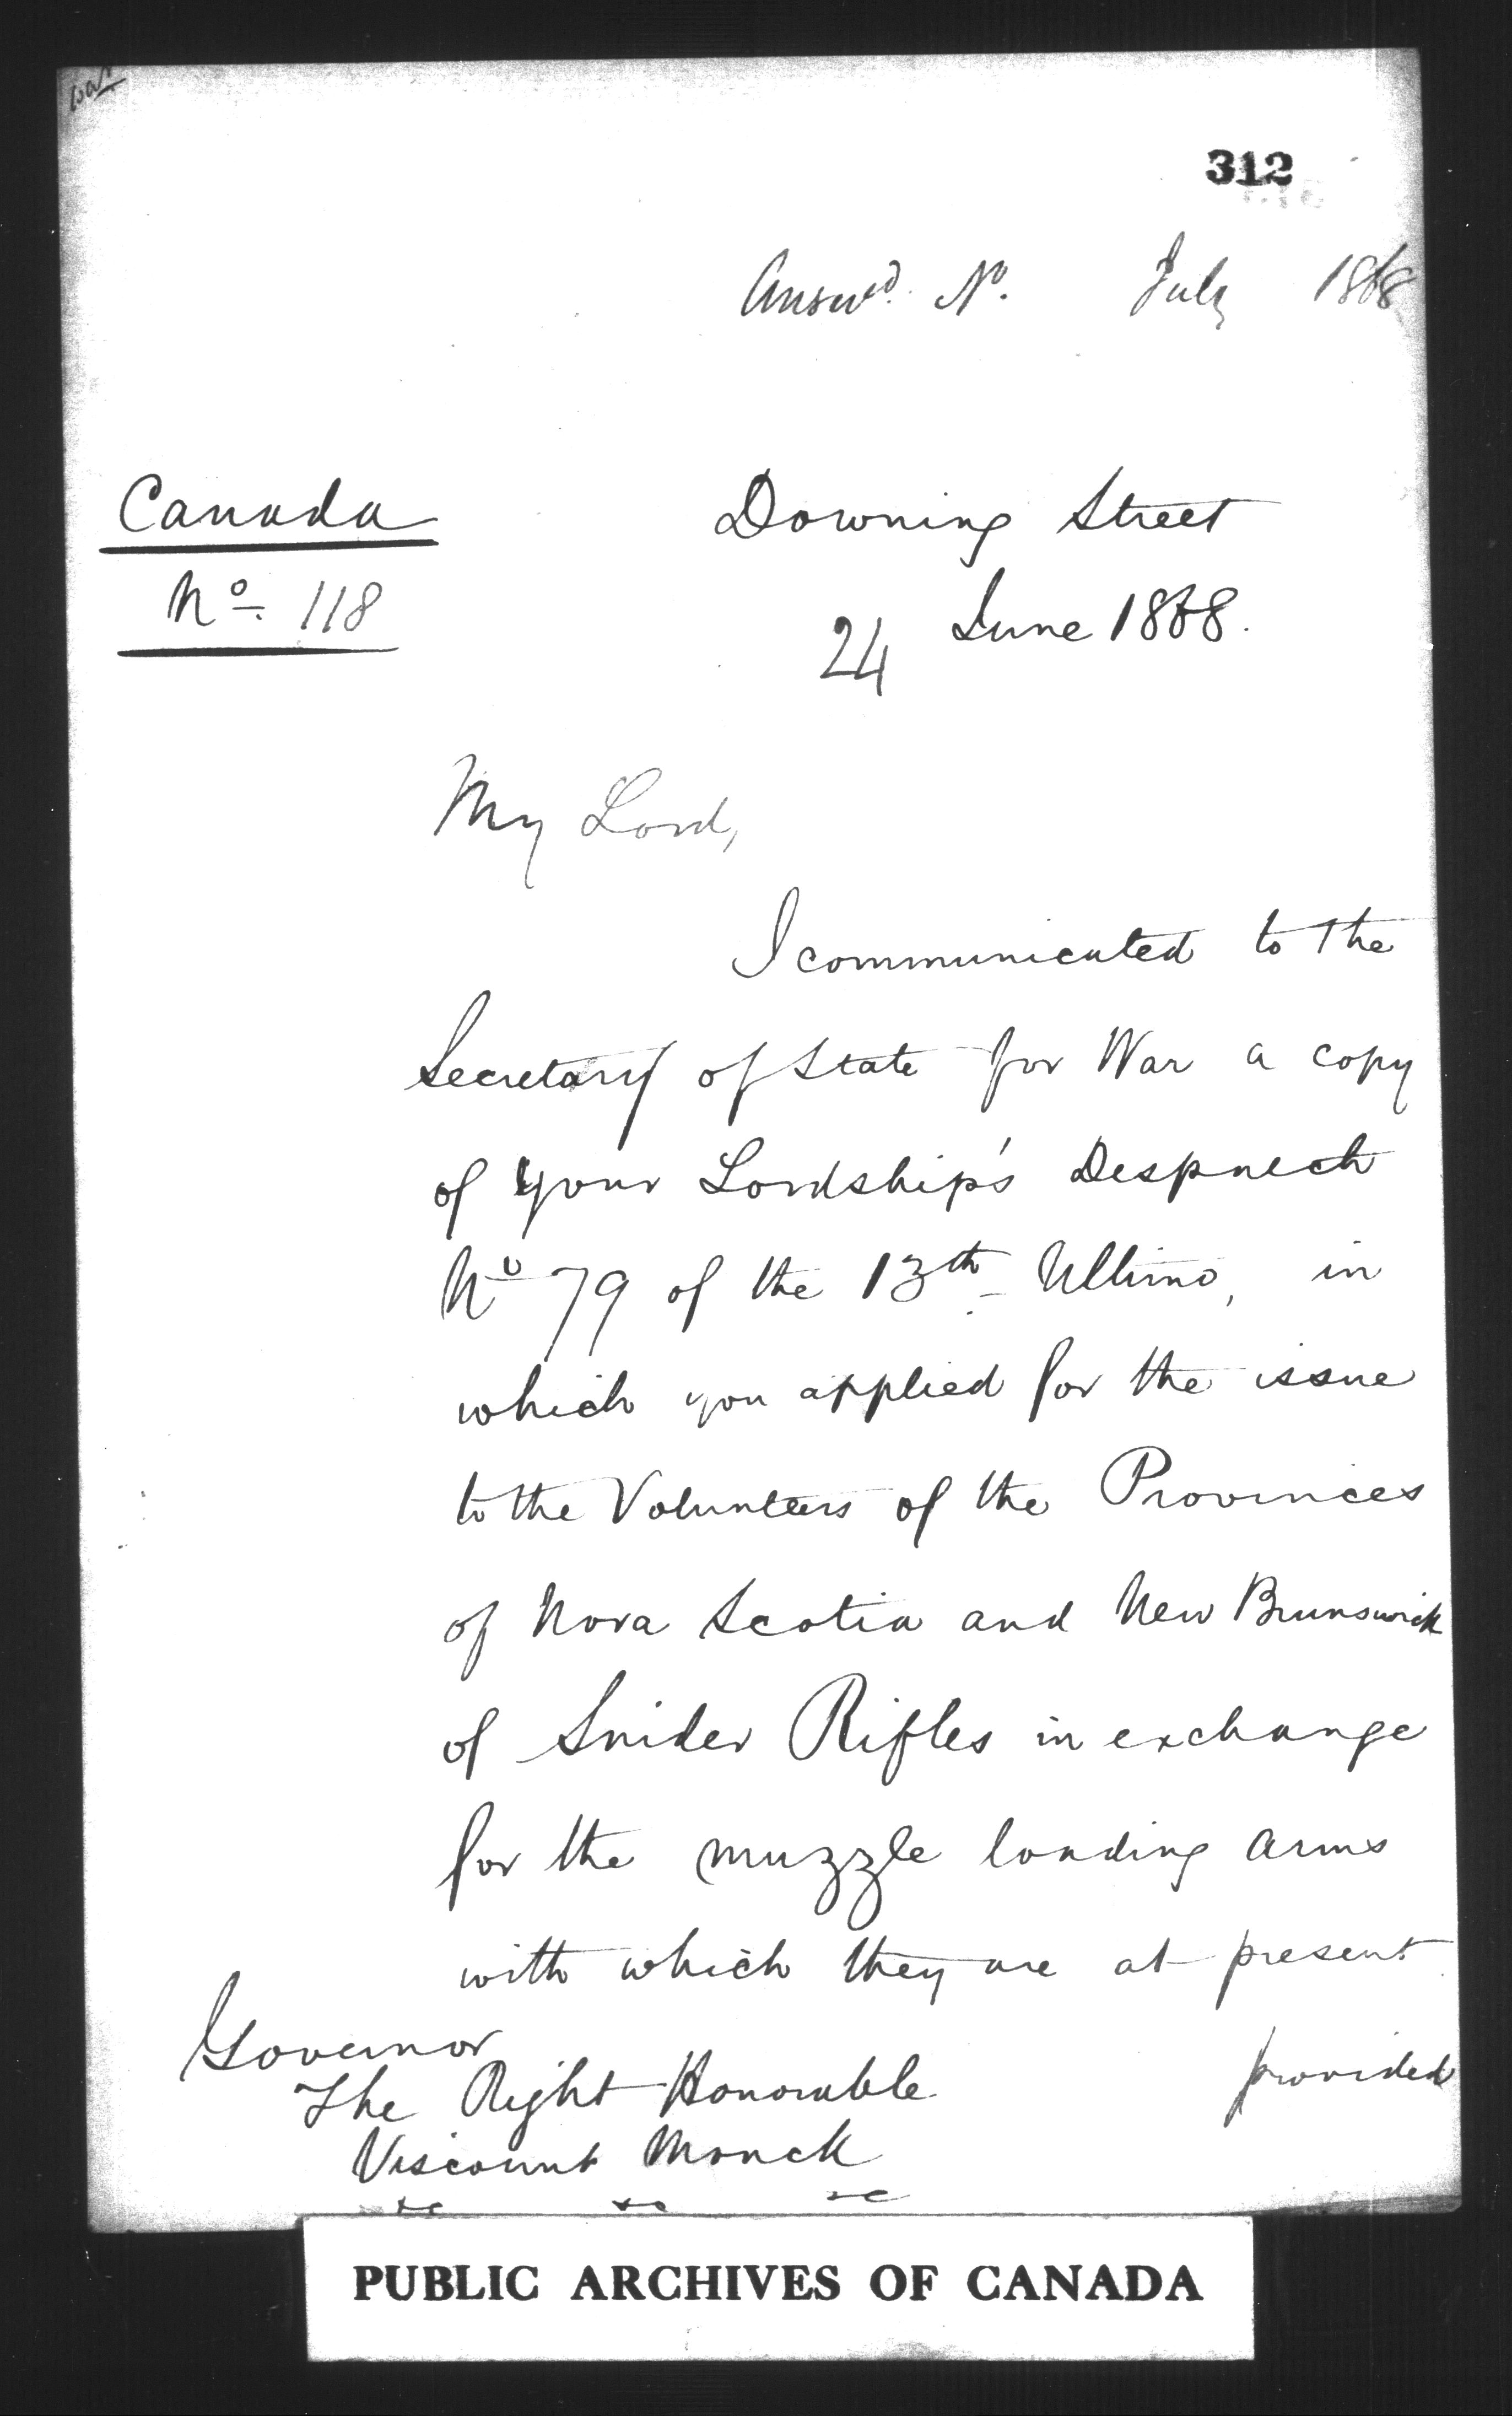 312
Answd. No. July 1868
Canada
No. 118
Downing Street
24 June 1868.
My Lord,
I communicated to the
Secretary of State for War a copy
of your Lordship's Despatch
No 79 of the 13th Ultimo, in
which you applied for the issue
to the Volunteers of the Provinces
of Nova Scotia and New Brunswick
of Snider Rifles in exchange
for the muzzle loading arms
with which they are at present
provided
Governor
The Right Honorable
Viscount Monck
&c &c &c
PUBLIC ARCHIVES OF CANADA